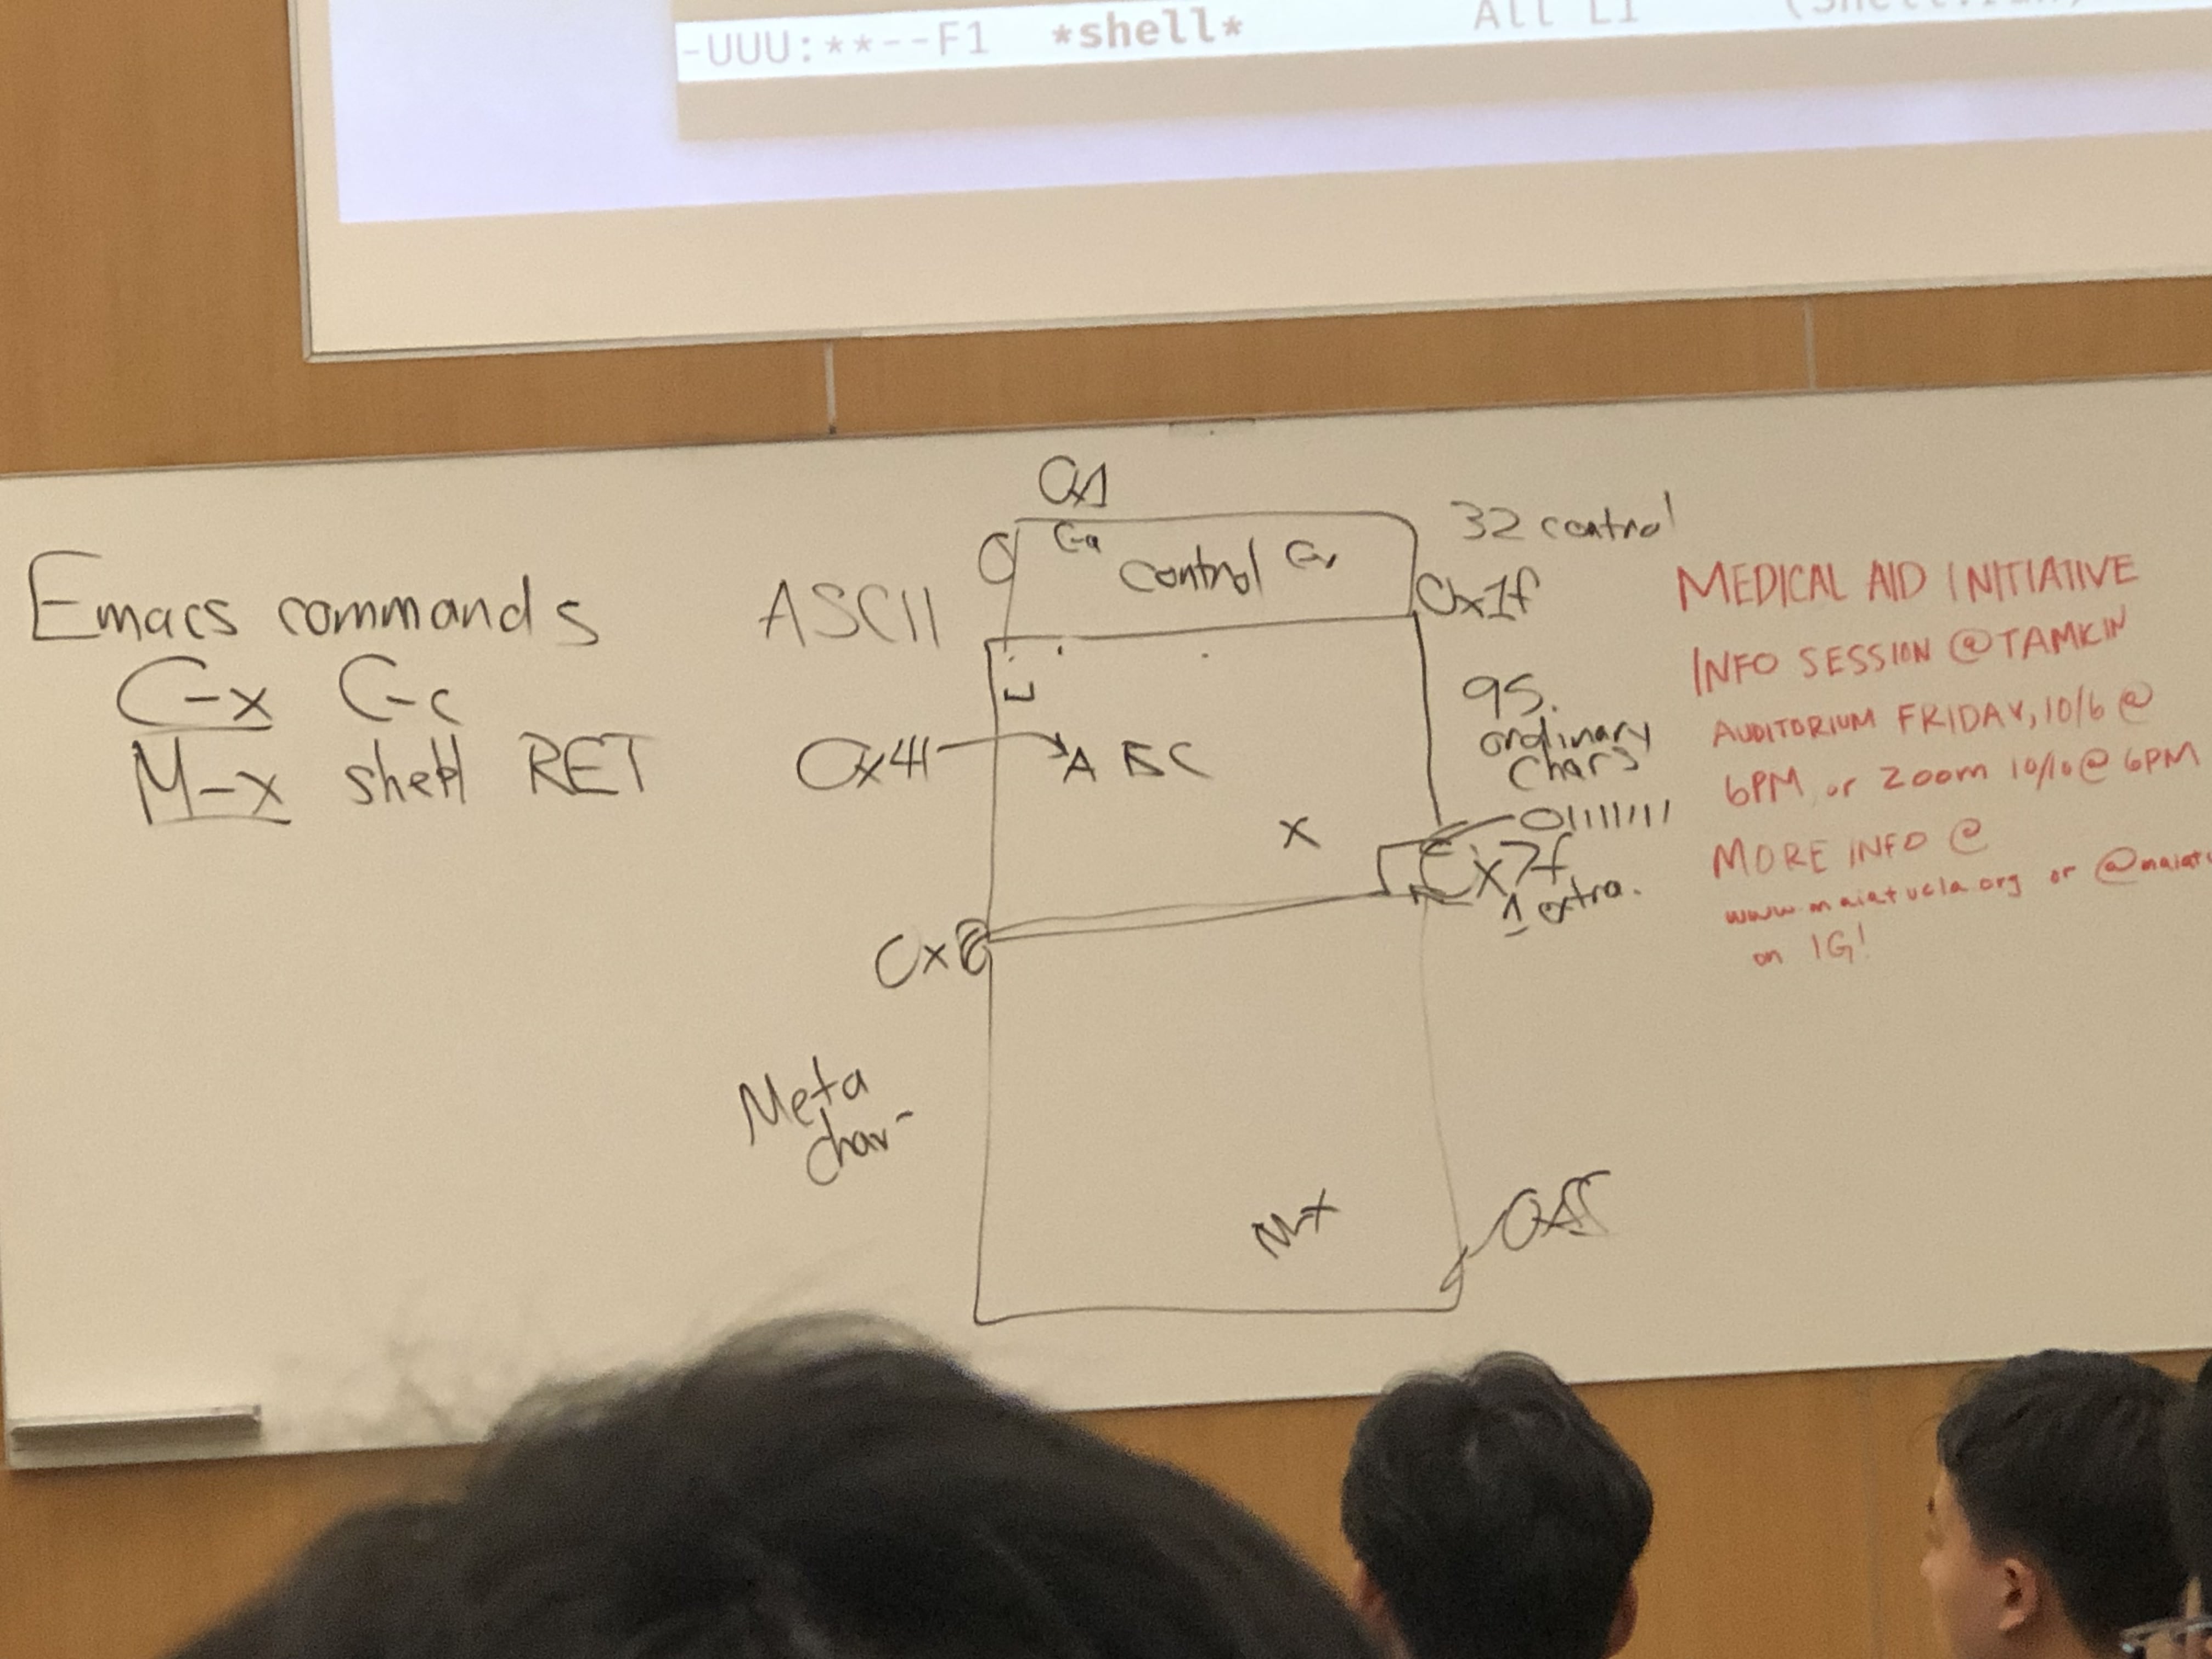 -UUU:**--F1 *shell* All L1
Emacs commands
C-x C-c
M-x shell RET
ASCII
0x1
0
C-a
control
32 control
0x1f
95
ordinary
chars
0x41
A B C
x
01111111
0x7f
1 extra.
0x8
Meta
char
M-x
0xff
MEDICAL AID INITIATIVE
INFO SESSION @TAMKIN
AUDITORIUM FRIDAY, 10/6 @
6PM or Zoom 10/10 @ 6PM
MORE INFO @
www.maiatucla.org or @maiatu
on IG!